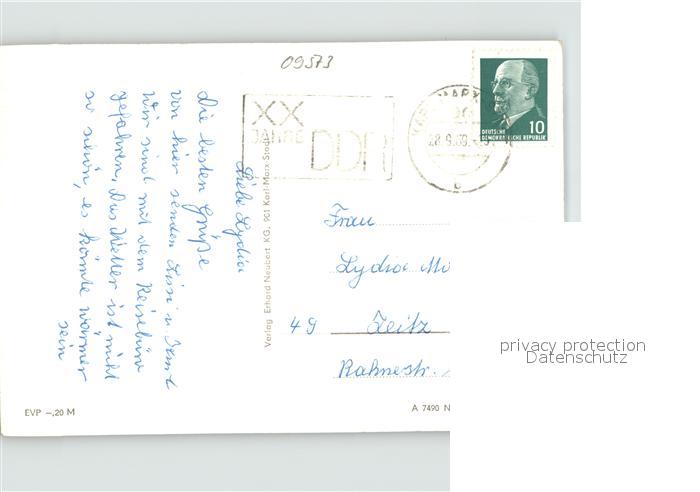 09573
XX
JAHRE
DDR
DEUTSCHE
DEMOKRATISCHE REPUBLIK
10
28.9.69
Liebe Lydia
Die besten Grüße
von hier senden
Wir sind mit dem Reisebüro
gefahren. Das Wetter ist nicht
so schön, es könnte wärmer
sein
Verlag Erhard Neubert KG, 901 Karl-Marx-Stadt
Frau
Lydia
49 Zeitz
Rahnestr.
EVP –,20 M
A 7490
privacy protection
Datenschutz